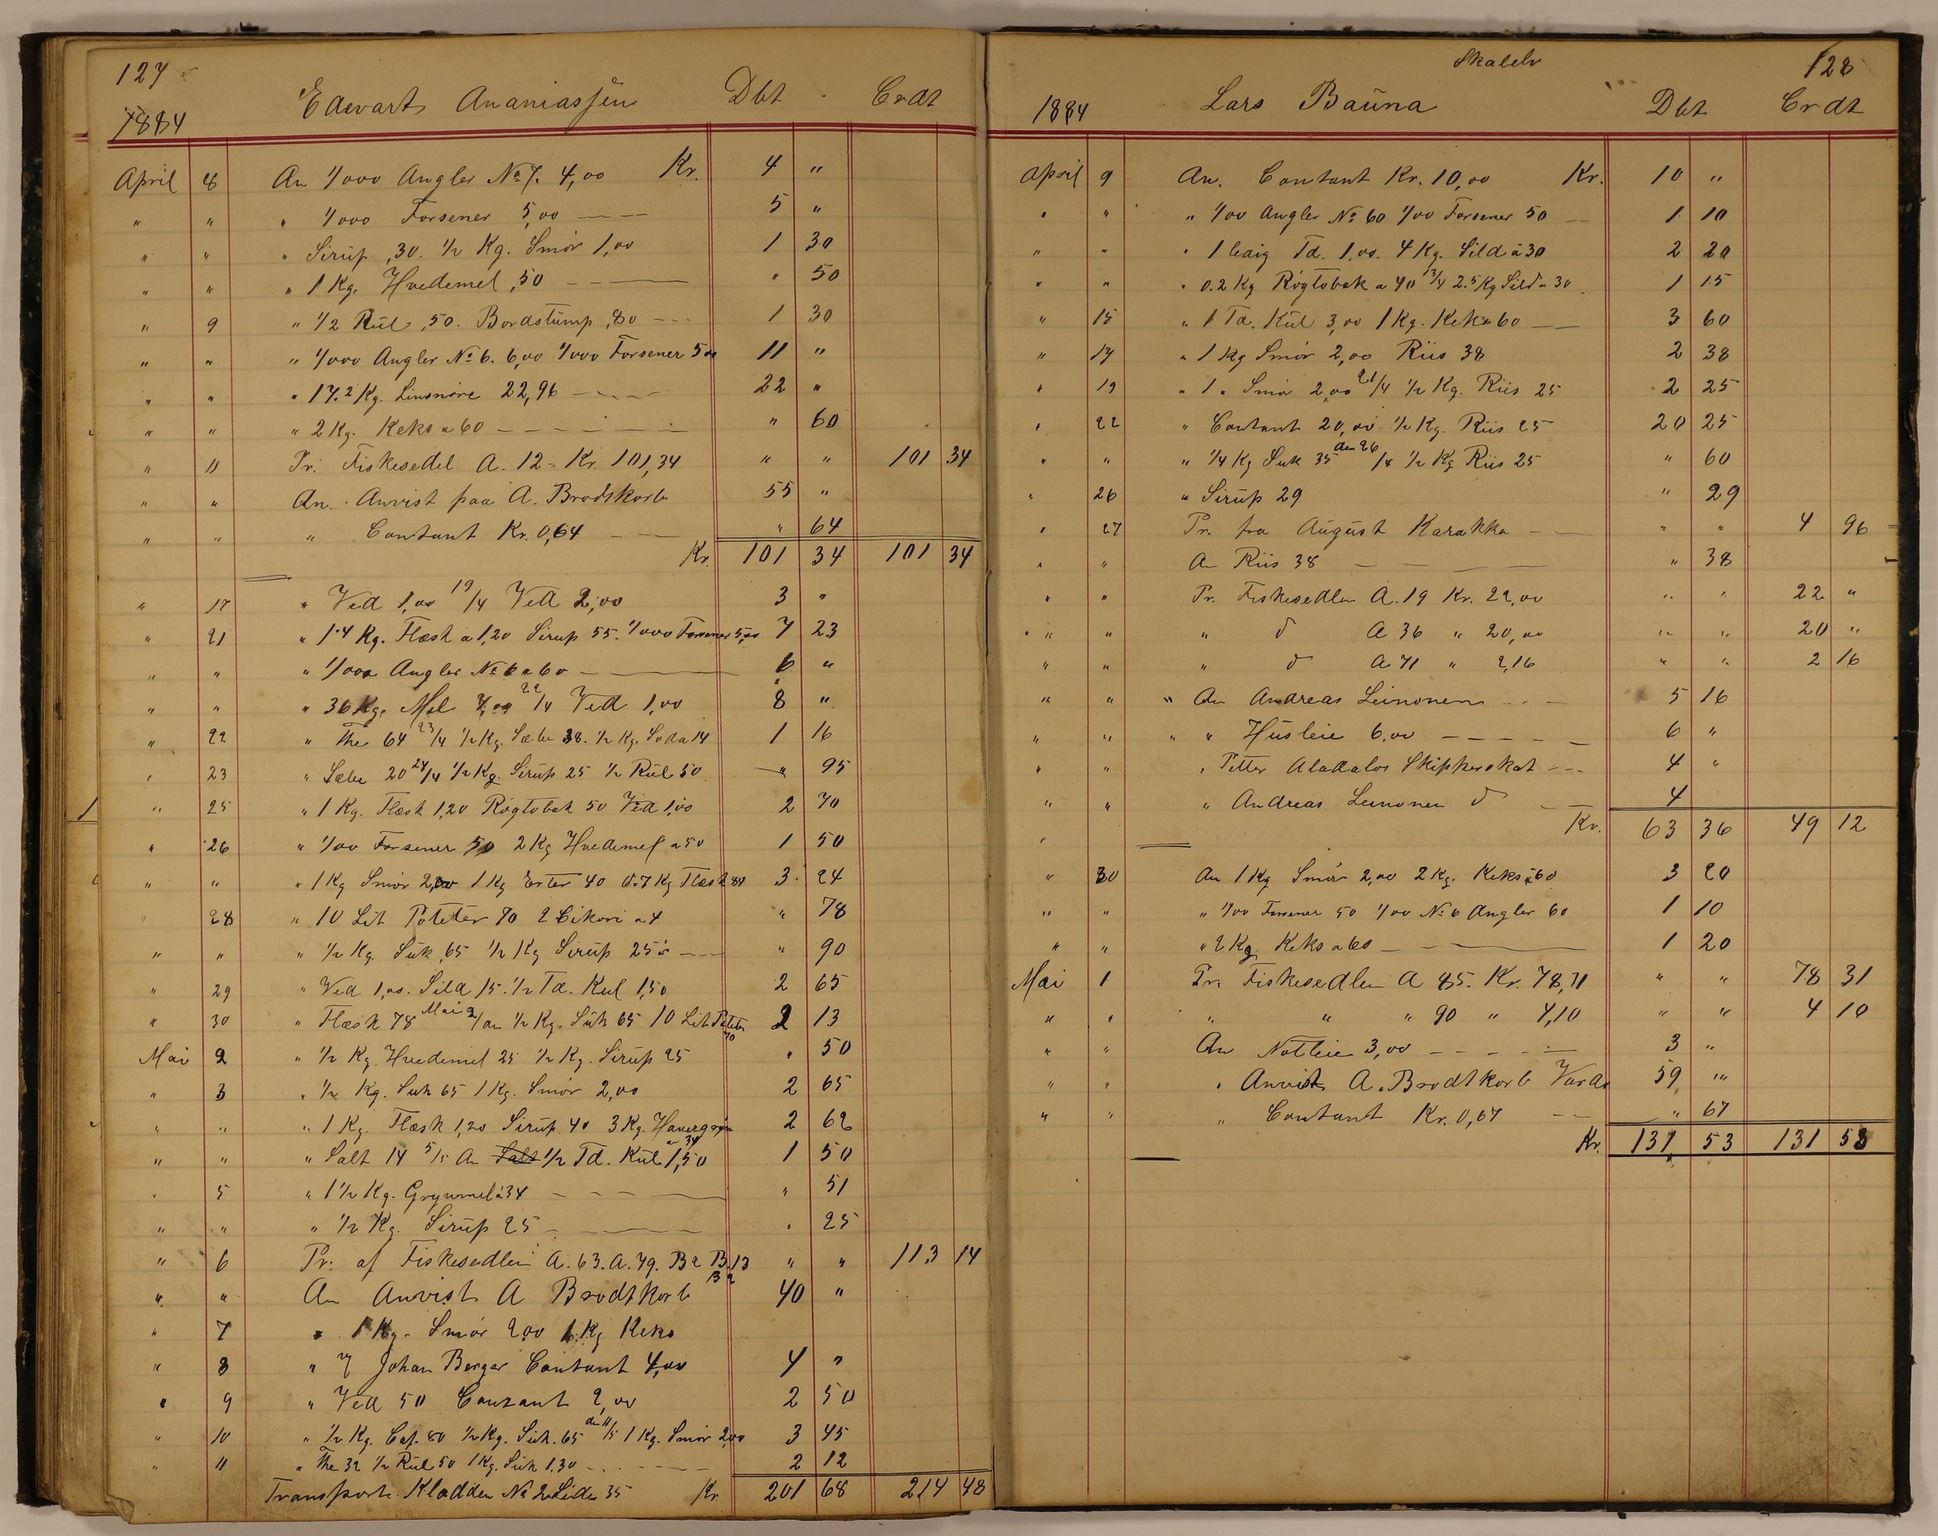 127
1884 Edevart Ananiassen Dbt Crdt
April 8 An 1/000 Angler No 7. 4,00 Kr. 4 "
" " " 1/000 Forsener 5,00 5 "
" " " Sirup ,30. 1/2 Kg. Smør 1,00 1 30
" " " 1 Kg. Hvedemel ,50 " 50
" 9 " 1/2 Kul ,50. Bordstump ,80 1 30
" " " 1/000 Angler No 6. 6,00 1/000 Forsener 5 00 11 "
" " " 17.2 Kg. Linsnøre 22,96 22 "
" " " 2 Kg. Keks a 60 " 60
" 11 Pr. Fiskesedel A. 12 = Kr. 101,34 " " 101 34
" " An. Anvist paa A. Brodtkorb 55 "
" " " Contant Kr. 0,64 " 64
Kr. 101 34 101 34
" 17 " Ved 1,00 19/4 Ved 2,00 3 "
" 21 " 1.4 Kg. Flæsk a 1,20 Sirup 55. 1/000 Forsener 5,00 7 23
" " " 1/000 Angler No 6 a 60 6 "
" " " 36 Kg. Mel 7,00 22/4 Ved 1,00 8 "
" 22 " The 64 23/4 1/2 Kg. Sæbe 38. 1/2 Kg. Soda 14 1 16
" 23 " Sæbe 20 24/4 1/2 Kg. Sirup 25 1/2 Kul 50 " 95
" 25 " 1 Kg. Flæsk 1,20 Røgtobak 50 Ved 1,00 2 70
" 26 " 1/00 Forsener 50 2 Kg Hvedemel a 50 1 50
" " " 1 Kg Smør 2,00 1 Kg Erter 40 0.7 Kg Flæsk 84 3 24
" 28 " 10 Lit Poteter 70 2 Cikori a 4 " 78
" " " 1/2 Kg. Suk ,65 1/2 Kg Sirup 25 " 90
" 29 " Ved 1,00. Sild 15. 1/2 Td. Kul 1,50 2 65
" 30 " Flæsk 78 Mai 2/ an 1/2 Kg. Suk 65 10 Lit Poteter 70 2 13
Mai 2 " 1/2 Kg. Hvedemel 25 1/2 Kg. Sirup 25 " 50
" 3 " 1/2 Kg. Suk 65 1 Kg. Smør 2,00 2 65
" " " 1 Kg. Flæsk 1,20 Sirup 40 3 Kg. Havregryn a 34 2 62
" " " Salt 14 5/5 An Salt 1/2 Td. Kul 1,50 1 50
" 5 " 1 1/2 Kg. Grynmel a 34 " 51
" " " 1/2 Kg. Sirup 25 " 25
" 6 Pr. af Fiskesedlen A. 63. A. 79. B 2 B. 13 B 2 " " 113 14
" " An Anvist A Brodtkorb 40 "
" 7 " 1 Kg. Smør 2,00 1 Kg Keks
" 8 " Johan Berger Contant 4,00 4 "
" 9 " Ved 50 Contant 2,00 2 50
" 10 " 1/2 Kg. Caf. 80 1/2 Kg. Suk. 65 den 11/5 1 Kg. Smør 2,00 3 45
" 11 " The 32 1/2 Kul 50 1 Kg. Suk 1,30 2 12
Transport Kladden No 2 Side 35 Kr. 201 68 214 48
Skalelv 128
1884 Lars Bauna Dbt Crdt
April 9 An. Contant Kr. 10,00 Kr. 10 "
" " " 1/00 Angler No 60 1/00 Forsener 50 1 10
" " " 1 ledig Td. 1,00. 4 Kg. Sild a 30 2 20
" " " 0.2 Kg Røgtobak a 40 13/4 2.5 Kg Sild a 30 1 15
" 15 " 1 Td. Kul 3,00 1 Kg. Keks 60 3 60
" 17 " 1 Kg Smør 2,00 Riis 38 2 38
" 19 " 1 " Smør 2,00 21/4 1/2 Kg. Riis 25 2 25
" 22 " Contant 20,00 1/2 Kg. Riis 25 20 25
" " " 1/4 Kg Suk 35 den 26/4 1/2 Kg Riis 25 " 60
" 26 " Sirup 29 " 29
" 27 Pr. fra August Karakka " " 4 96
" " An Riis 38 " 38
" " Pr. Fiskesedlen A. 19 Kr. 22,00 " " 22 "
" " " d A 36 " 20,00 " " 20 "
" " " d A 71 " 2,16 " " 2 16
" " " An Andreas Leinonen 5 16
" " " " Husleie 6,00 6 "
" " " Petter Aladalos Skipperskat 4 "
" " " Andreas Leinonen d 4
Kr. 63 36 49 12
" 30 An 1 Kg Smør 2,00 2 Kg. Keks a 60 3 20
" " " 1/00 Forsener 50 1/00 No 6 Angler 60 1 10
" " " 2 Kg. Keks a 60 1 20
Mai 1 Pr. Fiskesedlen A 85. Kr. 78,31 " " 78 31
" " " " " 90 " 4,10 " " 4 10
" " An Notleie 3,00 3 "
" " " Anvist A. Brodtkorb Vardø 59 "
" " " Contant Kr. 0,67 " 67
Kr. 131 53 131 53